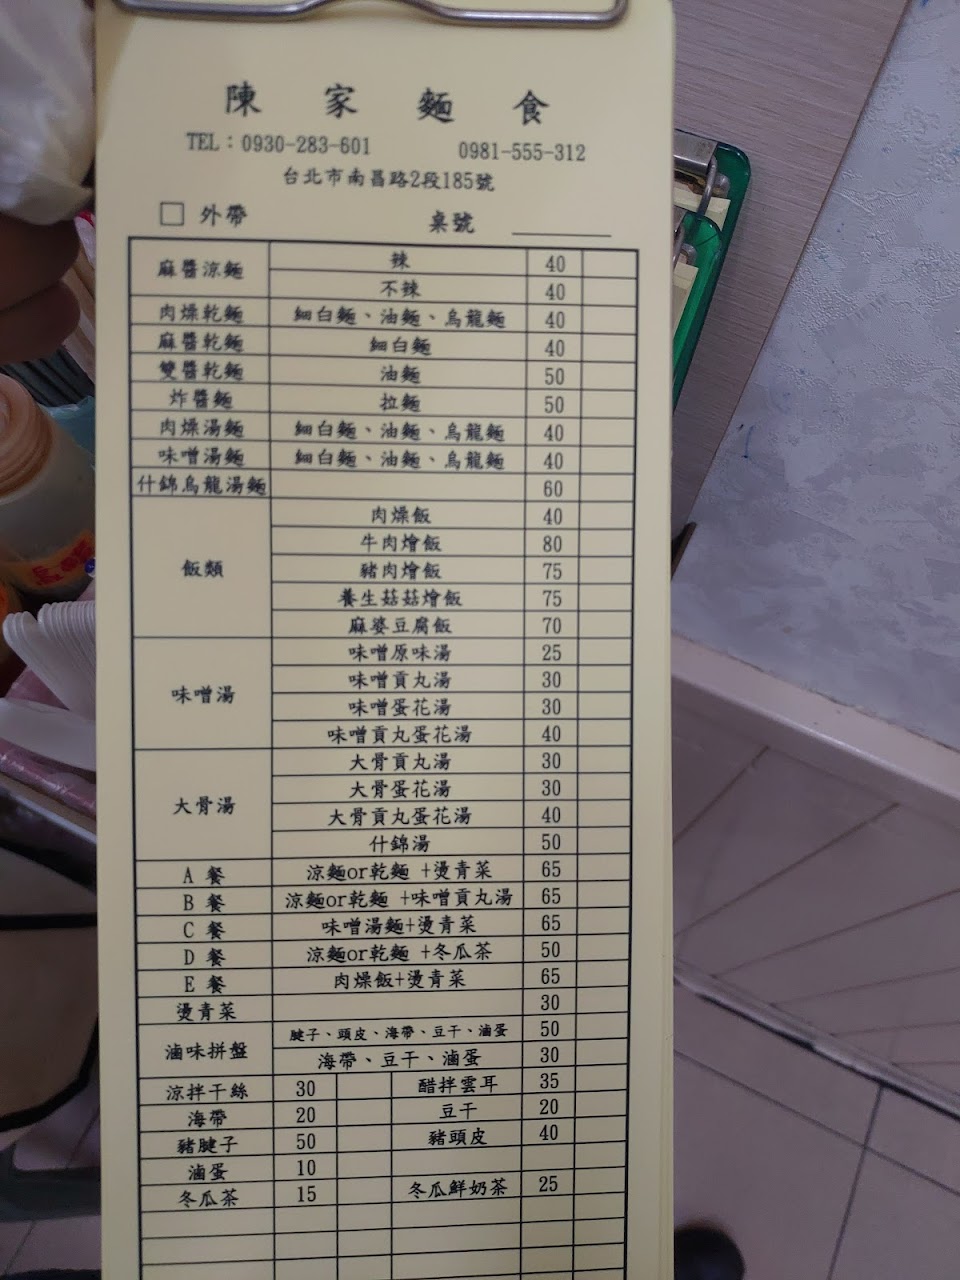 陳家麵食
TEL：0930-283-601 0981-555-312
台北市南昌路2段185號
□ 外帶 桌號
麻醬涼麵 辣 40
不辣 40
肉燥乾麵 細白麵、油麵、烏龍麵 40
麻醬乾麵 細白麵 40
雙醬乾麵 油麵 50
炸醬麵 拉麵 50
肉燥湯麵 細白麵、油麵、烏龍麵 40
味噌湯麵 細白麵、油麵、烏龍麵 40
什錦烏龍湯麵 60
飯類 肉燥飯 40
牛肉燴飯 80
豬肉燴飯 75
養生菇菇燴飯 75
麻婆豆腐飯 70
味噌湯 味噌原味湯 25
味噌貢丸湯 30
味噌蛋花湯 30
味噌貢丸蛋花湯 40
大骨湯 大骨貢丸湯 30
大骨蛋花湯 30
大骨貢丸蛋花湯 40
什錦湯 50
A 餐 涼麵or乾麵 +燙青菜 65
B 餐 涼麵or乾麵 +味噌貢丸湯 65
C 餐 味噌湯麵+燙青菜 65
D 餐 涼麵or乾麵 +冬瓜茶 50
E 餐 肉燥飯+燙青菜 65
燙青菜 30
滷味拼盤 腱子、頭皮、海帶、豆干、滷蛋 50
海帶、豆干、滷蛋 30
涼拌干絲 30 醋拌雲耳 35
海帶 20 豆干 20
豬腱子 50 豬頭皮 40
滷蛋 10
冬瓜茶 15 冬瓜鮮奶茶 25